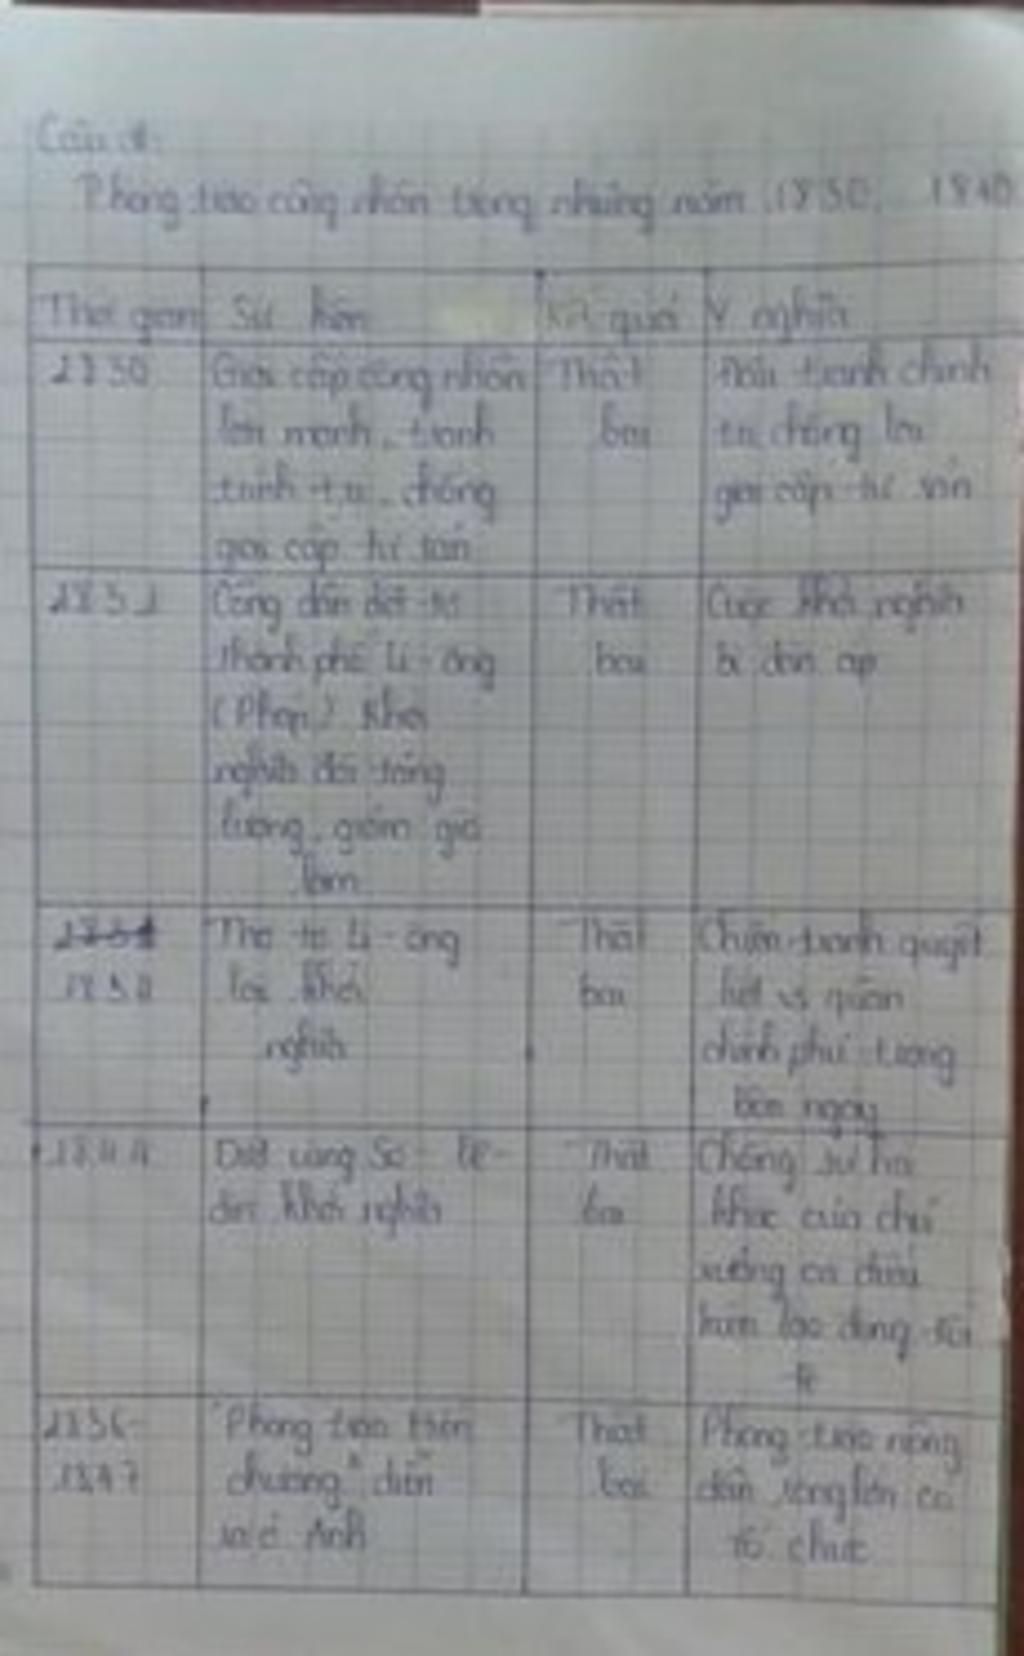 Câu 1:
Phong trào công nhân trong những năm 1830, 1840
Thời gian Sự kiện Kết quả Ý nghĩa
1830
Giai cấp công nhân
lớn mạnh, tranh
chống
giai cấp tư sản
Thất
bại
Đấu tranh chính
trị, chống lại
giai cấp tư sản
1831
Công dân dệt tơ
thành phố Li-ông
(Pháp) khởi
nghĩa đòi tăng
lương, giảm giờ
làm
Thất
bại
Cuộc khởi nghĩa
bị đàn áp
1834
Thợ tơ Li-ông
lại khởi
nghĩa
Thất
bại
Chiến tranh quyết
liệt vs quân
chính phủ trong
bốn ngày
1844
Dệt vùng Sơ-lê-
din khởi nghĩa
Thất
bại
Chống sự hà
khắc của chủ
xưởng và điều
kiện lao động tồi
tệ
1836-
1847
"Phong trào hiến
chương" diễn
ra ở Anh
Thất
bại
Phong trào nông
dân rộng lớn có
tổ chức